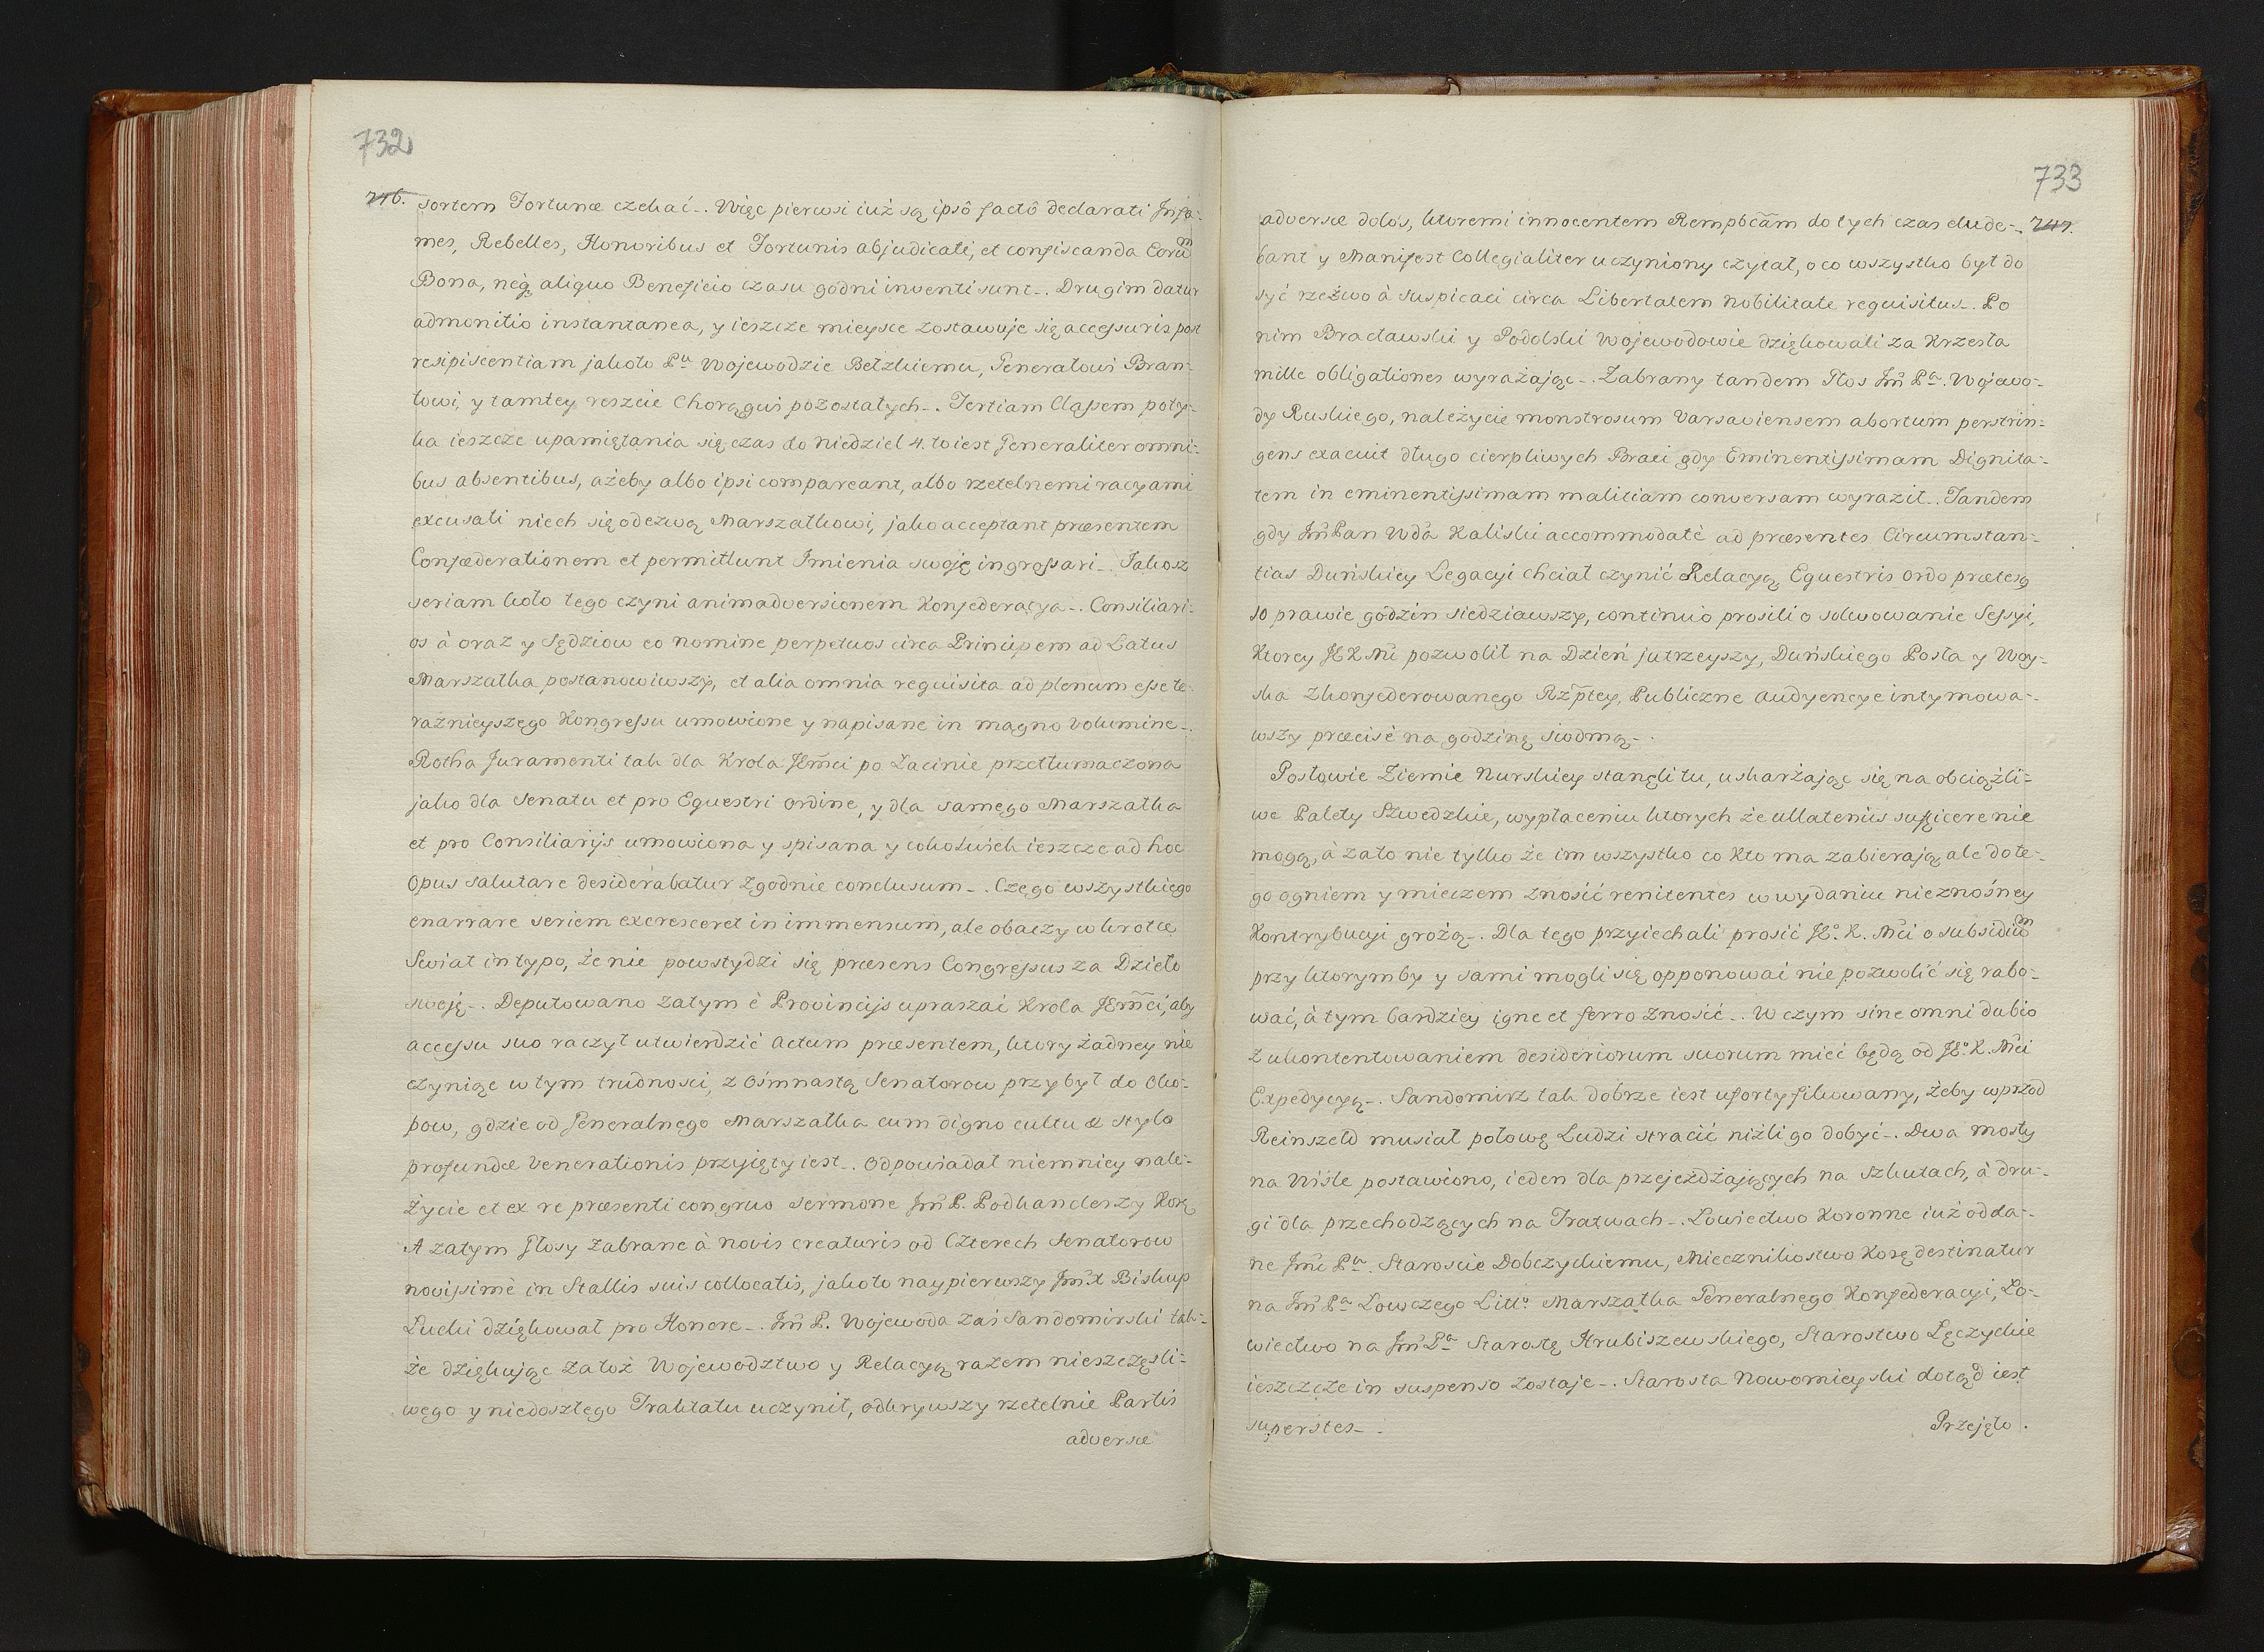 732
746. sortem Fortunæ czekać -. Więc pierwsi iuż są ipsô factô declarati Infa-
mes, Rebelles, Honoribus et Fortunis abjudicati, et confiscanda Eorum
Bona, neq; aliquo Beneficio czasu godni inventi sunt -. Drugim datur
admonitio instantanea, y ieszcze mieysce zostawuje się accessuris post
resipiscentiam jakoto Pu Wojewodzie Bełzkiemu, Generałowi Bran-
towi, y tamtey reszcie Chorągwi pozostałych -. Tertiam Classem poty-
ka ieszcze upamiętania się czas do niedziel 4. to iest Generaliter omni-
bus absentibus, ażeby albo ipsi compareant, albo rzetelnemi racyami
excusati niech się odezwą Marszałkowi, jako acceptant præsentem
Confæderationem et permittunt Imienia swoję ingrossari -. Jakosz
seriam koło tego czyni animadversionem Konfederacya -. Consiliari-
os à oraz y Sędziow eo nomine perpetuos circa Principem ad Latus
Marszałka postanowiwszy, et alia omnia requisita ad plenum esse te-
raznieyszego Kongressu umowione y napisane in magno volumine -.
Rotha Juramenti tak dla Krola JEm̃ci po Łacinie przetłumaczona
jako dla Senatu et pro Equestri ordine, y dla samego Marszałka
et pro Consiliarijs umowiona y spisana y cokolwiek ieszcze ad hoc
Opus salutare desiderabatur zgodnie conclusum -. Czego wszystkiego
enarrare seriem excresceret in immensum, ale obaczy wkrotce
Swiat in typo, że nie powstydzi się præsens Congressus za Dzieło
swoję -. Deputowano zatym è Provincijs upraszać Krola JEm̃ci, aby
accessu suo raczył utwierdzić Actum præsentem, ktory żadney nie
czyniąc w tym trudnosci, z Ośmnastą Senatorow przybył do Oko-
pow, gdzie od Generalnego Marszałka cum digno cultu & stylo
profundæ venerationis przyięty iest -. Odpowiadał niemniey nale-
życie et ex re præsenti congruo sermone Jm̃ P. Podkanclerzy Korę
A zatym Głosy zabrane à novis creaturis od Czterech Senatorow
novissimè in Stallis suis collocatis, jakoto naypierwszy Jm̃ X Biskup
Łucki dziękował pro Honore -. Jm̃ P. Wojewoda zaś Sandomirski tak-
że dziękując za toż Wojewodztwo y Relacyą razem nieszczęsli-
wego y niedoszłego Traktatu uczynił, odkrywszy rzetelnie Partis
adversæ
733
747.
adversæ dolos, ktoremi innocentem Rempb̃cãm do tych czas elude-
bant y Manifest Collegialiter uczyniony czytał, o co wszystko był do
syć rzeźwo à suspicaci circa Libertatem nobilitate requisitus -. Po
nim Bracławski y Podolski Wojewodowie dziękowali za Krzesła
mille obligationes wyrażając -. Zabrany tandem Głos Jm̃ Pa. Wojewo-
dy Ruskiego, należycie monstrosum Varsaviensem abortum perstrin-
gens exacuit długo cierpliwych Braci gdy Eminentissimam Dignita-
tem in eminentissimam malitiam conversam wyraził -. Tandem
gdy Jm̃ Pan Wda Kaliski accommodatè ad præsentes Circumstan-
tias Duńskiey Legacyi chciał czynić Relacyą Equestris Ordo prætesą
10 prawie godzin siedziawszy, continuo prosili o solwowanie Sessyi,
Ktorey JEKMć pozwolił na Dzień jutrzeyszy, Duńskiego Posła y Woy-
ska zkonfederowanego Rzp̃tey, Publiczne Audyencye intymowa-
wszy præcisè na godzinę siodmą -.
Posłowie Ziemie Nurskiey stanęli tu, uskarżając się na obciążli-
we Palety Szwedzkie, wypłaceniu ktorych że ullatenùs sufficere nie
mogą, à zato nie tylko że im wszystko co kto ma zabierają, ale do te-
go ogniem y mieczem znosić renitentes w wydaniu nieznośney
Kontrybucyi grożą -. Dla tego przyiechali prosić JEo. K. Mći o subsidium
przy ktorymby y sami mogli się opponowai nie pozwolić się rabo-
wać, à tym bardziey igne et ferro znosić -. W czym sine omni dubio
z ukontentowaniem desideriorum suorum mieć będą od JEo. K. Mći
Expedycyą -. Sandomirz tak dobrze iest ufortyfikowany, żeby wprzod
Reinszeld musiał połowę Ludzi stracić niżli go dobyć -. Dwa mosty
na Wiśle postawiono, ieden dla przejeżdżających na Szkutach, à dru-
gi dla przechodzących na Tratwach -. Łowiectwo Koronne iuż odda-
ne Jm̃ci Pa. Staroscie Dobczyckiemu, Miecznikostwo Korę destinatur
na Jm̃ Pa Łowczego Litto Marszałka Generalnego Konfederacyi, Ło-
wiectwo na Jm̃ Pa Starostę Hrubiszewskiego, Starostwo Łęczyckie
ieszcze in suspenso zostaje -. Starosta Nowomieyski dotąd iest
superstes -.
Przejęto.